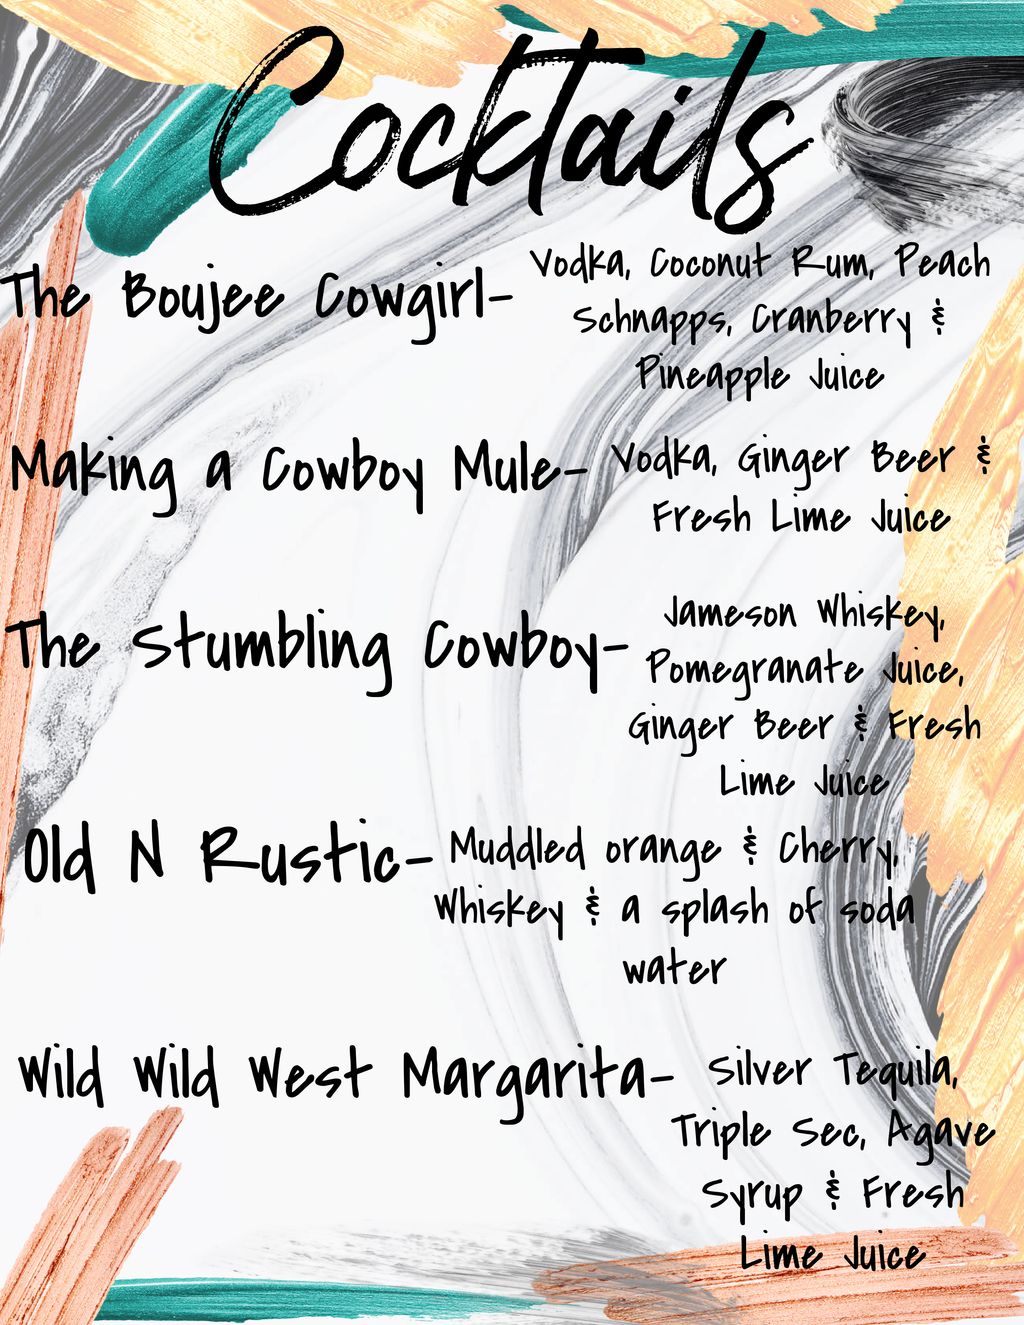 Cocktails
The Boujee Cowgirl- Vodka, Coconut Rum, Peach
Schnapps, Cranberry &
Pineapple Juice
Making a Cowboy Mule- Vodka, Ginger Beer &
Fresh Lime Juice
The Stumbling Cowboy- Jameson Whiskey,
Pomegranate Juice,
Ginger Beer & Fresh
Lime Juice
Old N Rustic- Muddled orange & Cherry,
Whiskey & a splash of soda
water
Wild Wild West Margarita- Silver Tequila,
Triple Sec, Agave
Syrup & Fresh
Lime Juice